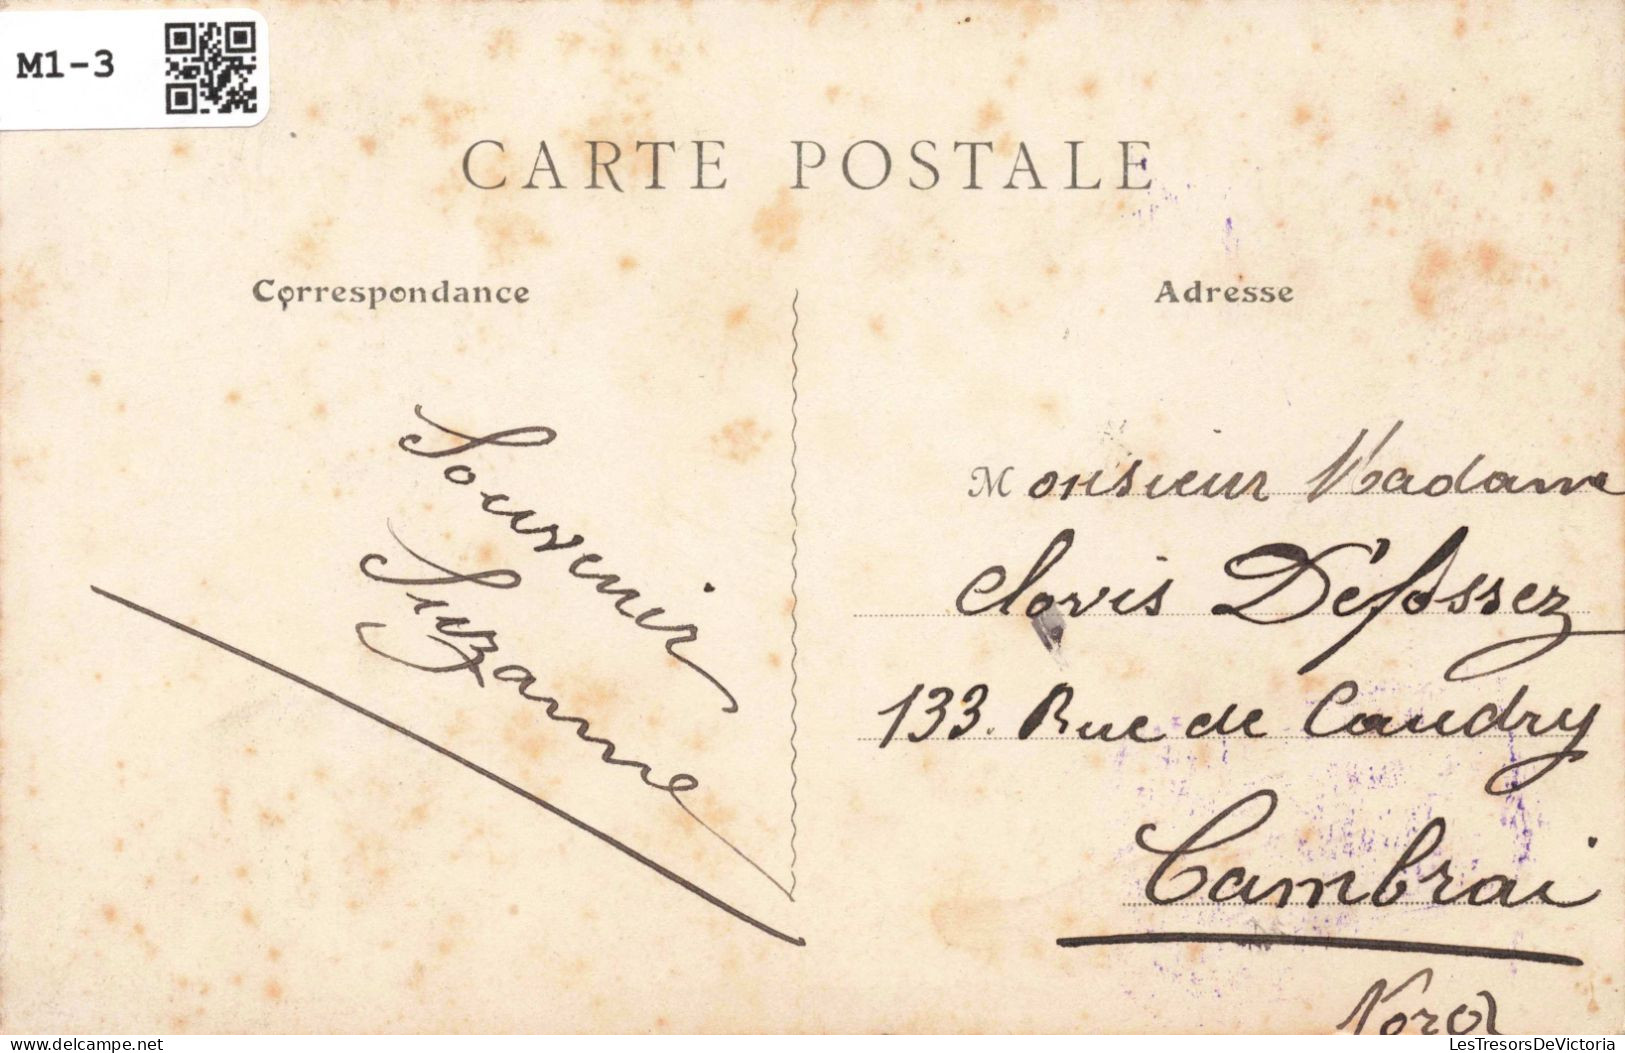 M1-3
CARTE POSTALE
Correspondance
Adresse
Souvenir
Suzanne
Monsieur Madame
Clovis Défossez
133. Rue de Caudry
Cambrai
Nord
LesTresorsDeVictoria
delcampe.net